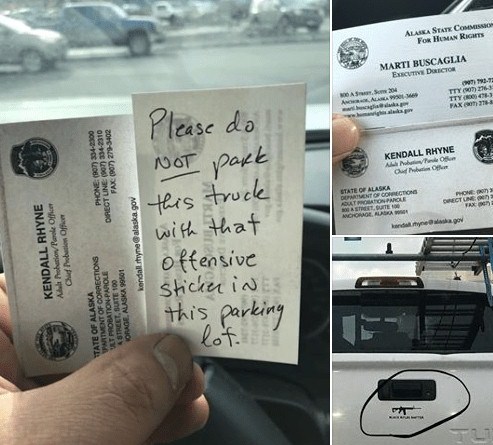 KENDALL RHYNE
Adult Probation/Parole Officer
Chief Probation Officer
PHONE: (907) 334-2300
DIRECT LINE: (907) 334-2310
FAX: (907) 279-3402
STATE OF ALASKA
DEPARTMENT OF CORRECTIONS
kendall.rhyne@alaska.gov
Please do
NOT park
this truck
with that
offensive
sticker in
this parking
lot.
ALASKA STATE COMMISSION
FOR HUMAN RIGHTS
MARTI BUSCAGLIA
EXECUTIVE DIRECTOR
800 A STREET, SUITE 204
ANCHORAGE, ALASKA 99501-3669
marti.buscaglia@alaska.gov
www.humanrights.alaska.gov
(907) 792-7
TTY (907) 276-3
TTY (800) 478-3
FAX (907) 278-8
KENDALL RHYNE
Adult Probation/Parole Officer
Chief Probation Officer
STATE OF ALASKA
DEPARTMENT OF CORRECTIONS
ADULT PROBATION-PAROLE
800 A STREET, SUITE 100
ANCHORAGE, ALASKA 99501
PHONE: (907) 3
DIRECT LINE: (907) 3
FAX: (907) 2
kendall.rhyne@alaska.gov
BLACK RIFLES MATTER
TU